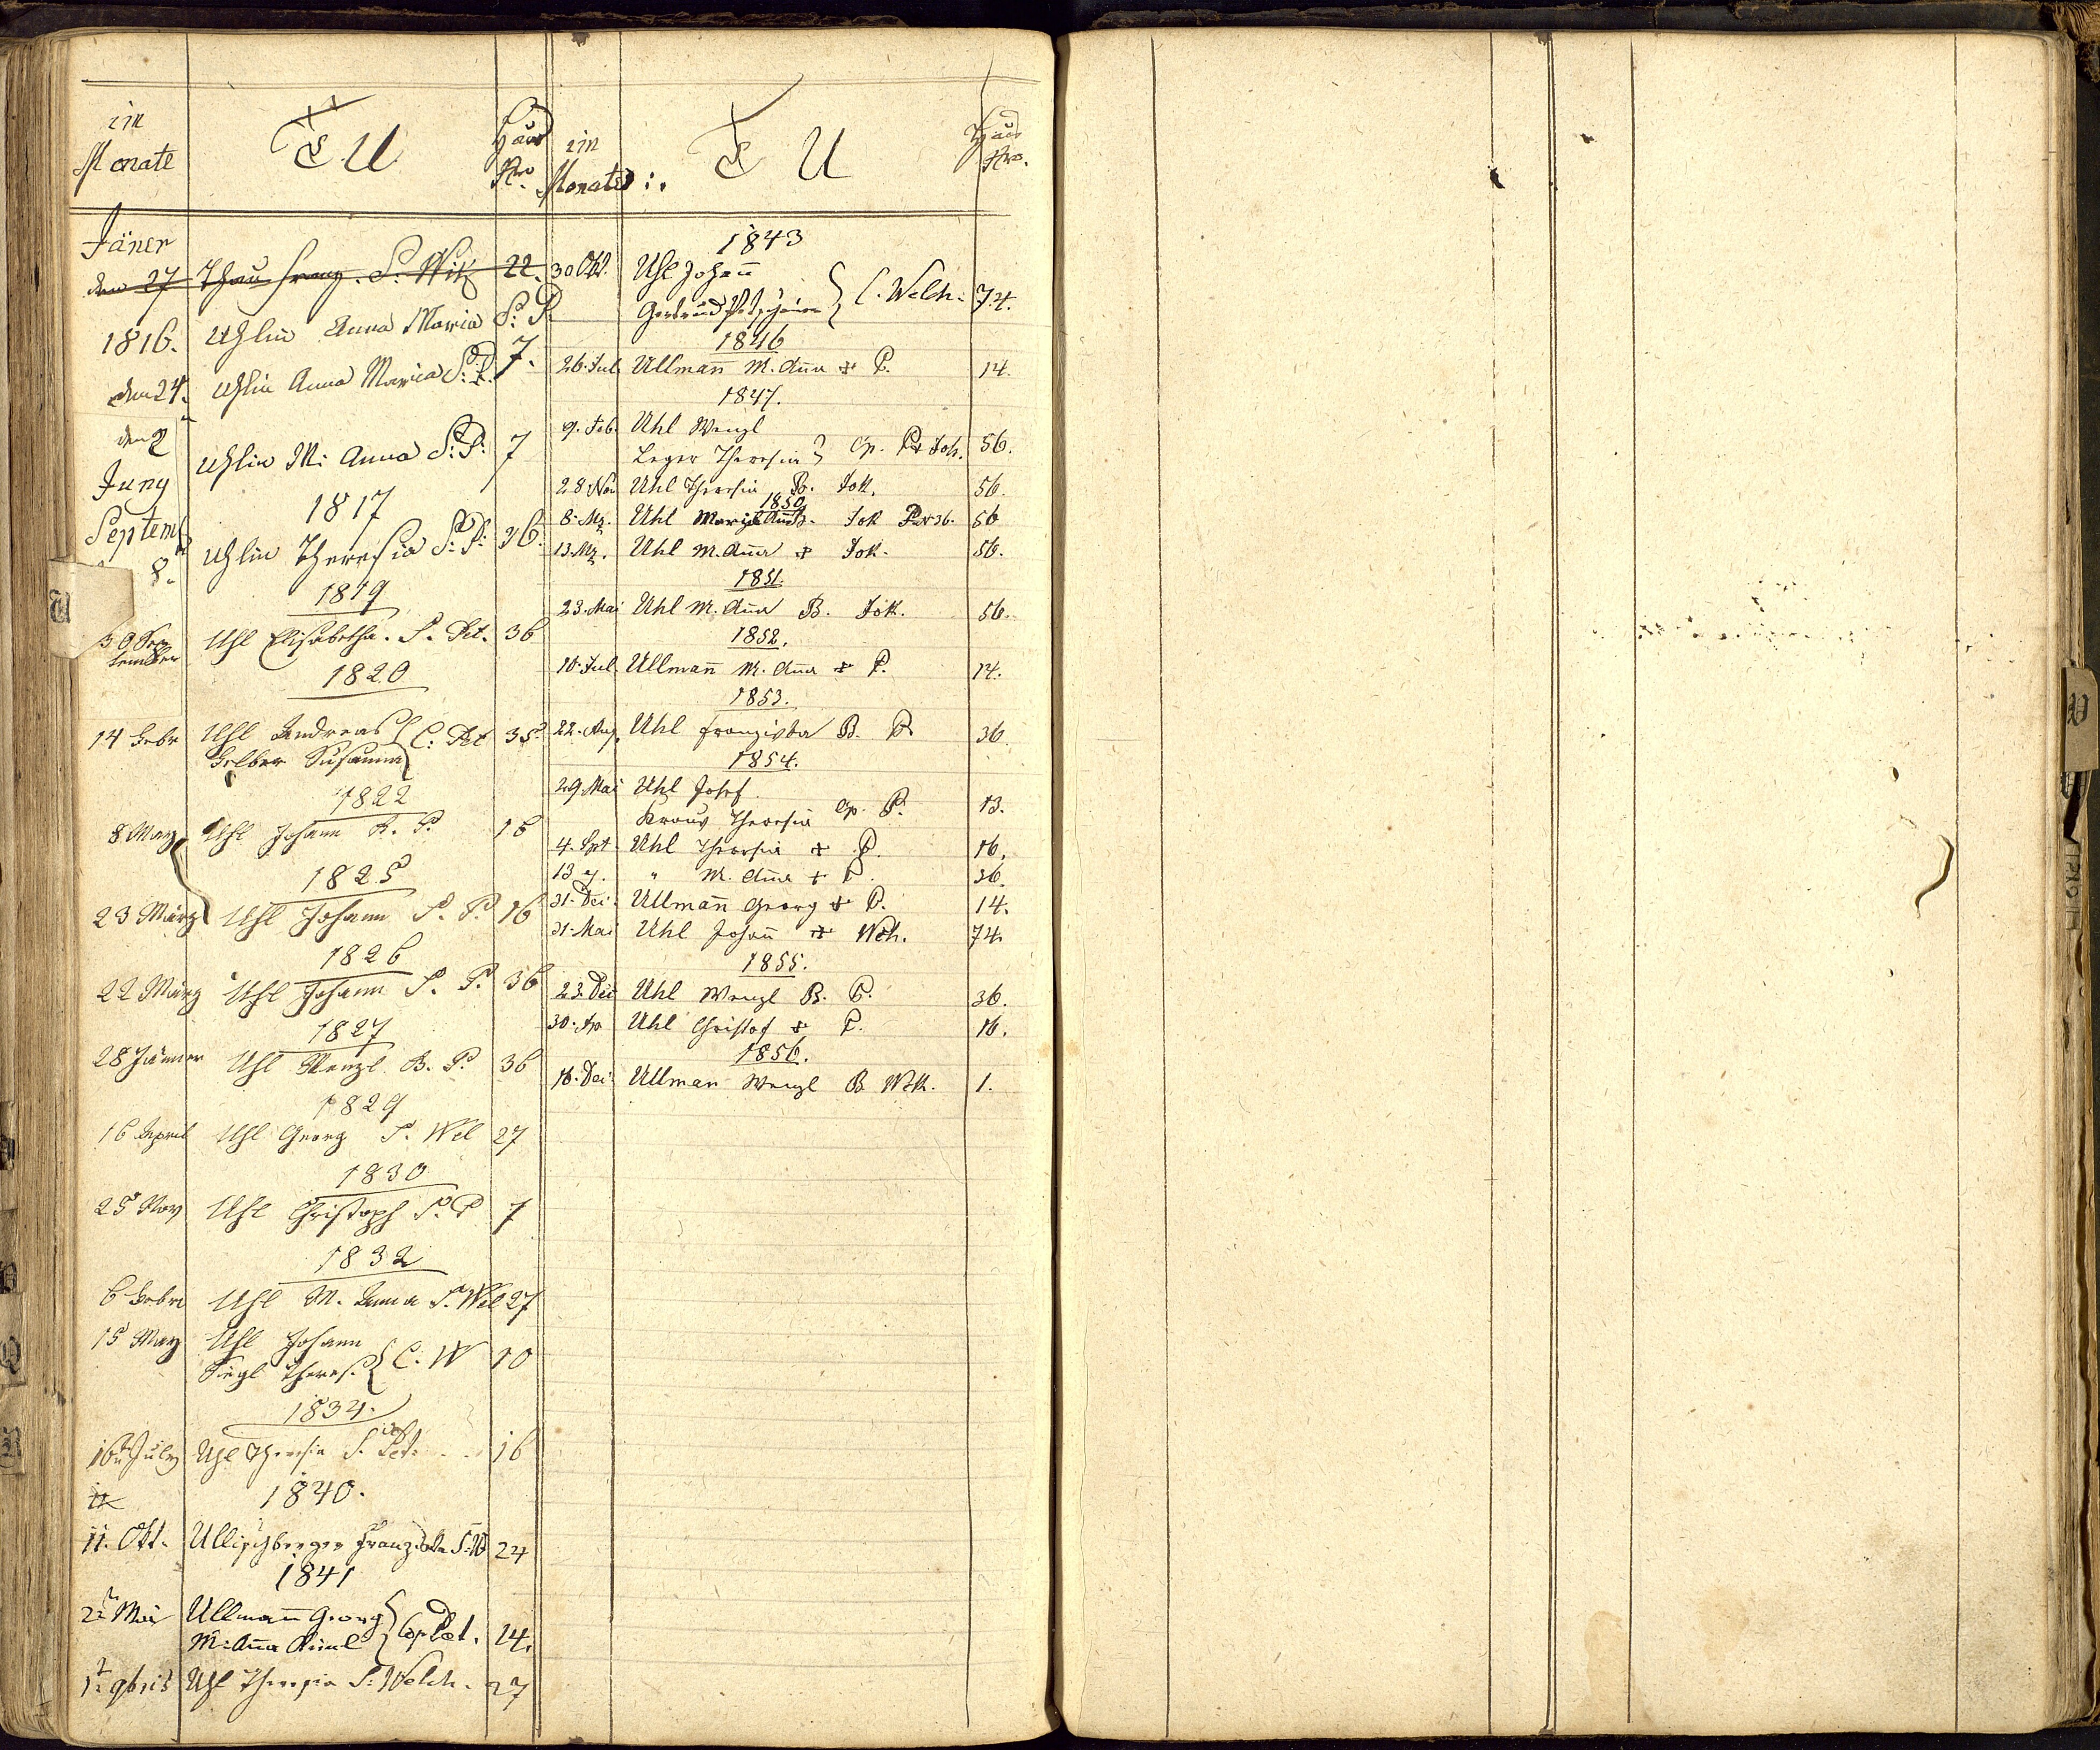 in
Monate
U
Haus
Nro.
Jäner
den 27 Franz. S. 22.
1816. Uhlin Anna Maria S: P.
7.
den 24. Uhlin Anna Maria S: P.
den 2
Juny
Uhlin M: Anna S: P: 7
1817
Septemb
8.
Uhlin Theresia S: P: 36.
1819
30 Sep
tember
Uhl Elisabetha. S. Pet. 36
1820
14 Febr Uhl Andreas
Susanna
C: Pet 35
1822
8 May Uhl Johann P. 16
1825
23 März Uhl Johann S. P. 16
1826
22 März Uhl Johann S. P. 36
1827
28 Jänner Uhl Wenzl B. P. 36
1829
16 April Uhl Georg S. Wel 27
1830
25 Nov Uhl Christoph S. P 7
1832
6 Febr Uhl M. Anna S. Wel 27
15 May Uhl Johann
Theres.
C: W 10
1834.
16 July Uhl Theresia S. Pet. 16
1840.
11. Okt. Franziska 24
1841
2 Mai Ullmañ Georg
M: Aña
Cop Pet. 14.
1 9bris Uhl Theresia S: Welch. 27
in
Monate:
U
Haus
Nro.
1843
30 Okt. Uhl Johañ
Gertrud
C. Welch. 74.
1846
26. Jul. Ullmañ M. Aña + P. 14.
1847.
9. Feb. Uhl Wenzl
Leger Theresia
Cp. Joh. 56.
28 Nov Uhl Theresia B. Jok. 56.
1850
8. Mz. Uhl Maria B. Jok 36. 56
13. Mz. Uhl M. Aña + Jok. 56.
1851.
23. Mai Uhl M. Aña B. Jok. 56.
1852.
10. Jul. Ullmañ M. Aña + P. 14.
1853.
22. Aug. Uhl Franziska B. P. 36.
1854.
29 Mai Uhl Josef
Kraus Theresia
Cp. P. 13.
4. Spt Uhl Theresia + P. 16.
13 " M. Aña + P. 36.
31. Dei. Ullmañ Georg + P. 14.
31. Mai Uhl Johañ + Wch. 74.
1855.
23. Dei Uhl Wenzl B. P. 36.
30. Ap Uhl Christof + P. 16.
1856.
16. Dei. Ullman Wenzl B Wch. 1.